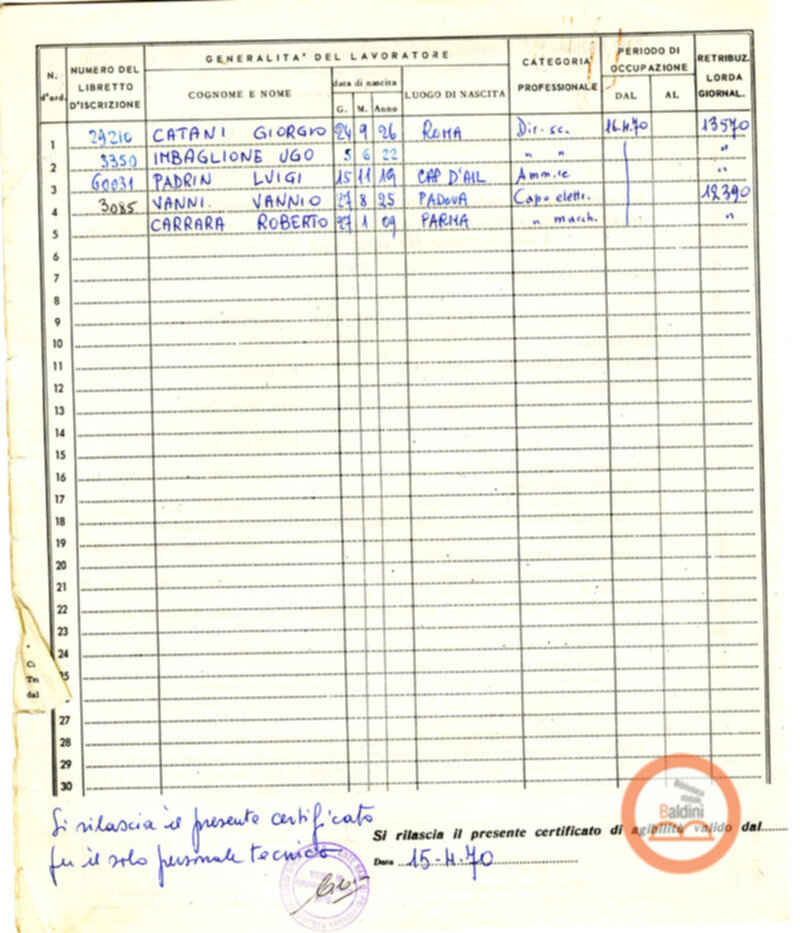 GENERALITA' DEL LAVORATORE
N. d'ord. NUMERO DEL LIBRETTO D'ISCRIZIONE COGNOME E NOME data di nascita G. M. Anno LUOGO DI NASCITA CATEGORIA PROFESSIONALE PERIODO DI OCCUPAZIONE DAL AL RETRIBUZ. LORDA GIORNAL.
1 29210 CATANI GIORGIO 24 9 26 ROMA Dir. sc. 16.4.70 13570
2 3350 IMBAGLIONE UGO 5 6 22 " " "
3 60031 PADRIN LUIGI 15 11 19 CAP D'AIL Amm.re "
4 3085 VANNI. VANNIO 27 8 25 PADOVA Capo elettr. 12390
5 CARRARA ROBERTO 27 1 09 PARMA " macch. "
6
7
8
9
10
11
12
13
14
15
16
17
18
19
20
21
22
23
24
27
28
29
30
Si rilascia il presente certificato
per il solo personale tecnico
Si rilascia il presente certificato di agibilità valido dal
Data 15-4-70
Biblioteca
statale
Baldini